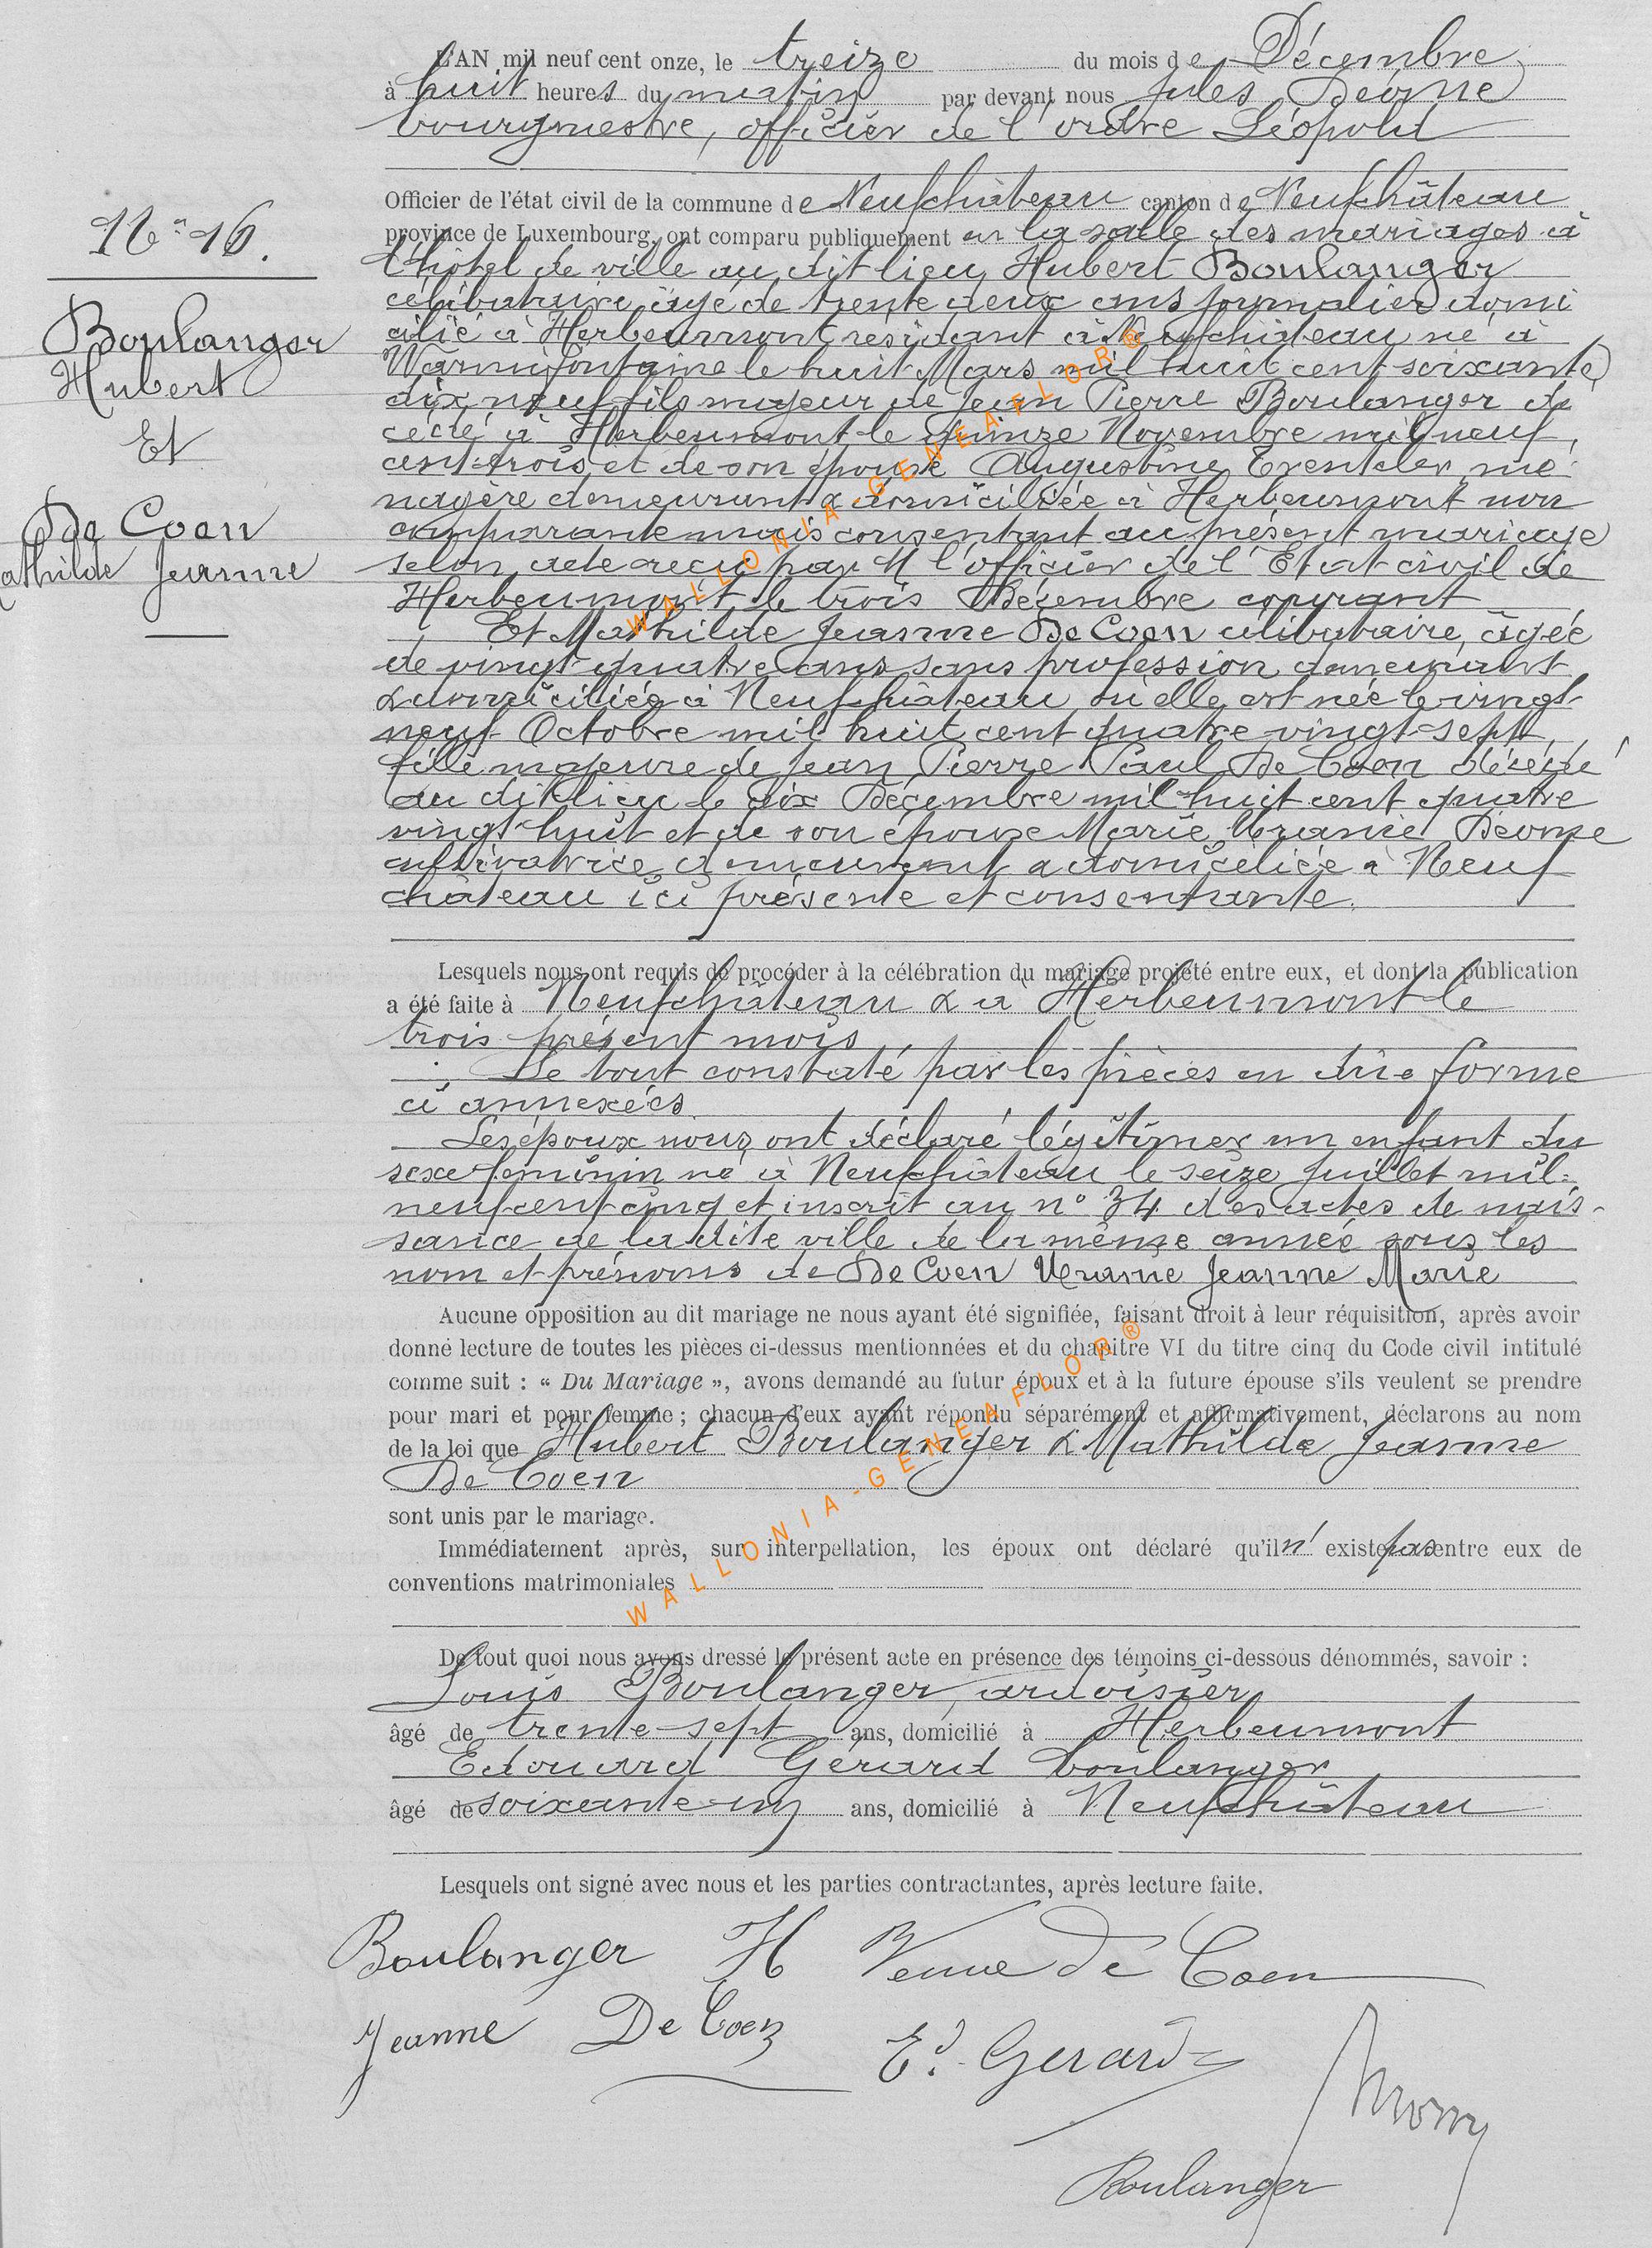 L'AN mil neuf cent onze, le treize du mois de Décembre
à huit heures du matin par devant nous Jules Deome
bourgmestre, officier de l'ordre Léopold
Officier de l'état civil de la commune de Neufchâteau canton de Neufchâteau
province de Luxembourg, ont comparu publiquement en la salle des mariages à
l'hôtel de ville au dit lieu, Hubert Boulanger
célibataire âgé de trente deux ans journalier domi
cilié à Herbeumont résidant à Neufchâteau né à
Warmifontaine le huit Mars mil huit cent soixante
dix neuf fils majeur de Jean Pierre Boulanger dé
cédé à Herbeumont le quinze Novembre mil neuf
cent trois et de son épouse Augustine mé
nagère demeurant & domiciliée à Herbeumont non
comparante mais consentant au présent mariage
selon acte reçu par M l'officier de l'Etat civil de
Herbeumont le trois Décembre courant
Et Mathilde Jeanne De Coen célibataire, âgée
de vingt quatre ans sans profession demeurant
& domiciliée à Neufchâteau où elle est née le vingt
neuf Octobre mil huit cent quatre vingt sept
fille majeure de Jean Pierre Paul De Coen décédé
au dit lieu le dix Décembre mil huit cent quatre
vingt huit et de son épouse Marie Uranie Deome
cultivatrice demeurant & domiciliée à Neuf
château ici présente et consentante.
N° 16.
Boulanger
Hubert
Et
De Coen
athilde Jeanne
Lesquels nous ont requis de procéder à la célébration du mariage projeté entre eux, et dont la publication
a été faite à Neufchâteau & à Herbeumont le
trois présent mois
Le tout constaté par les pièces en due forme
ci annexées.
Les époux nous ont déclaré légitimer un enfant du
sexe féminin né à Neufchâteau le seize Juillet mil-
neuf cent cinq et inscrit au n° 34 des actes de nais-
sance de la dite ville de la même année sous les
nom et prénoms de De Coen Uranie Jeanne Marie
Aucune opposition au dit mariage ne nous ayant été signifiée, faisant droit à leur réquisition, après avoir
donné lecture de toutes les pièces ci-dessus mentionnées et du chapitre VI du titre cinq du Code civil intitulé
comme suit : « Du Mariage », avons demandé au futur époux et à la future épouse s'ils veulent se prendre
pour mari et pour femme ; chacun d'eux ayant répondu séparément et affirmativement, déclarons au nom
de la loi que Hubert Boulanger & Mathilde Jeanne
De Coen
sont unis par le mariage.
Immédiatement après, sur interpellation, les époux ont déclaré qu'il n' existe pas entre eux de
conventions matrimoniales
De tout quoi nous avons dressé le présent acte en présence des témoins ci-dessous dénommés, savoir :
Louis Boulanger, ardoisier
âgé de trente-sept ans, domicilié à Herbeumont
Edouard Gérard boulanger
âgé de soixante-un ans, domicilié à Neufchâteau
Lesquels ont signé avec nous et les parties contractantes, après lecture faite.
Boulanger H Veuve De Coen
Jeanne De Coen Ed. Gerard
Boulanger
WALLONIA-GENEAFLOR®
WALLONIA-GENEAFLOR®